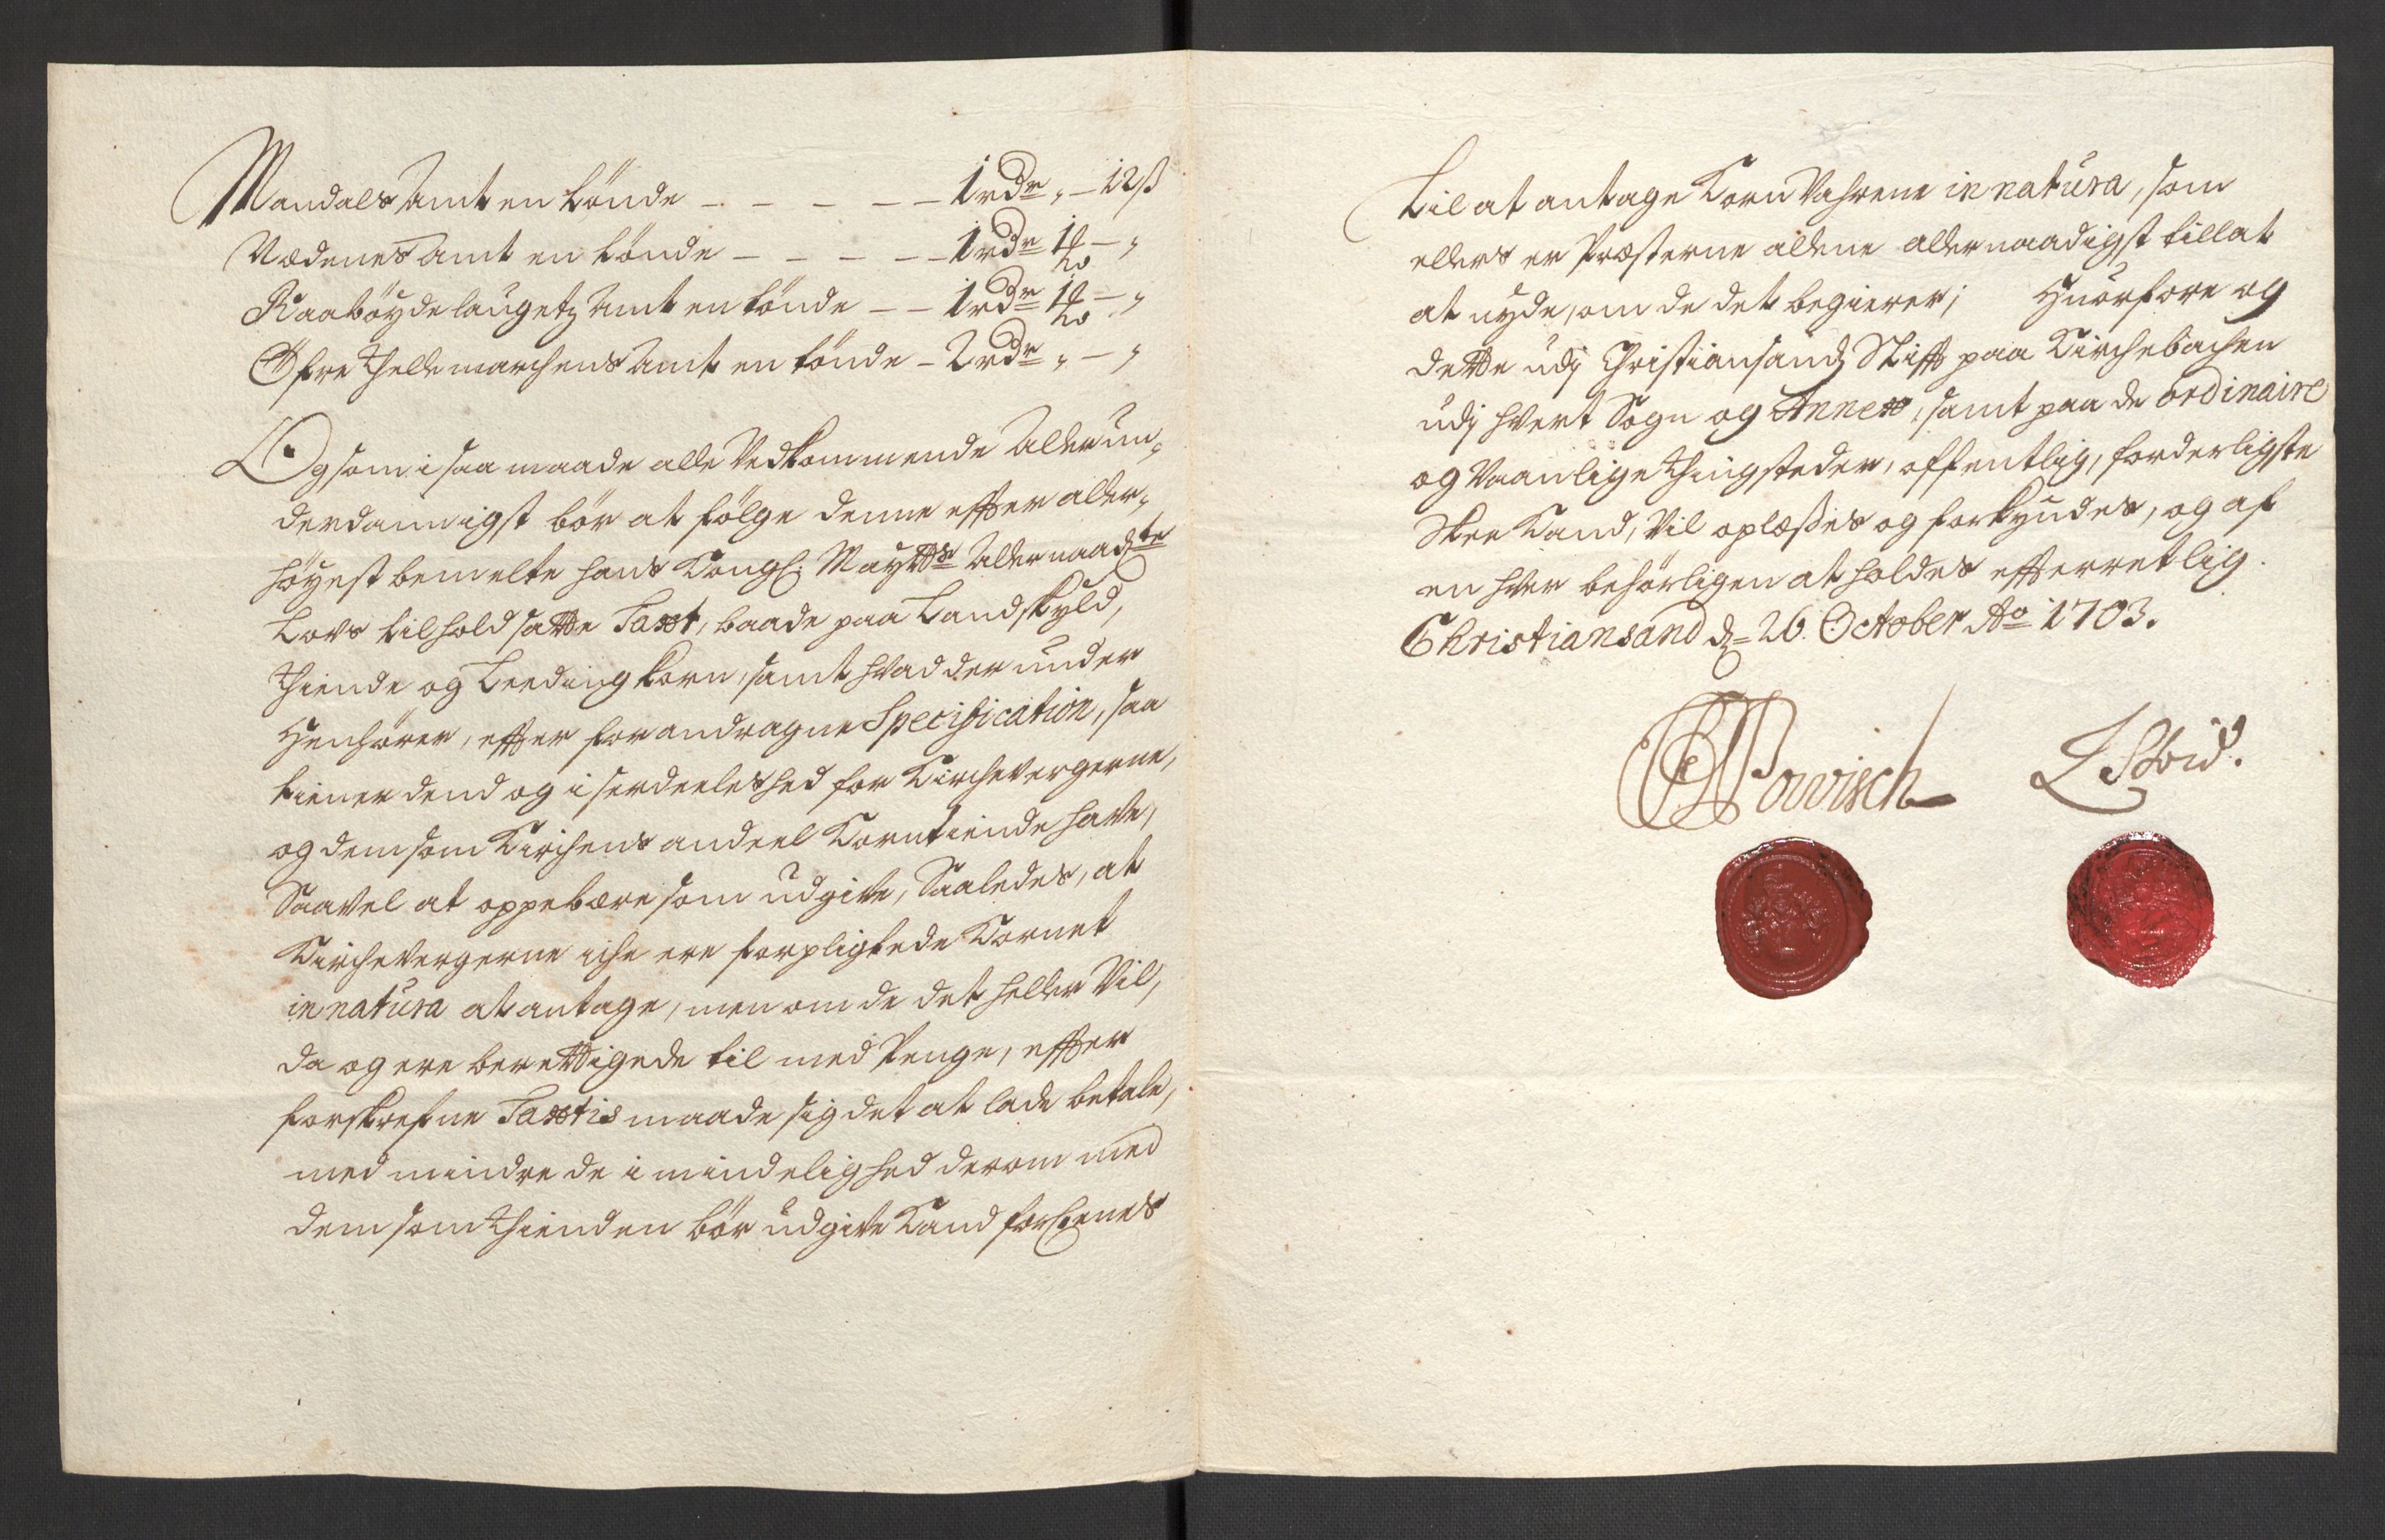 Mandals Amt en tönde - - - - - 1 rdr „ - 12 ß
Nædenes Amt en tönde - - - - - 1 rdr 1 ℔ - „
Raabøydelaugetz Amt en tönde - - 1 rdr 1 ℔ - „
Öfre Thellemarchens Amt en tönde - 2 rdr „ - „
Og som i saa maade alle Vedkommende Allerun-
derdannigst bör at fölge denne efter aller-
höyest bemelte hans Kongl: Maytts Allernaadgte
Lovs tilhold satte Taxt, baade paa Landskyld,
Thiende og Leeding korn, samt hvad der under
Henhörer, efter forandragne Specification, saa
tiener dend og i serdeeleshed for Kirchevergerne,
og dem som Kirchens andeel Korntiende have,
Saavel at oppebære som udgive, Saaledes, at
Kirchevergerne iche ere forpligtede Kornet
in natura at antage, men om de det heller Vil,
da og ere berettigede til med Penge, efter
forskrefne Taxtis maade sig det at lade betale,
med mindre de i mindelighed derom med
dem som Thienden bör udgive Kand foreenes
til at antage Korn Vahrene in natura, som
ellers er Præsterne allene allernaadigst tillat
at nyde, om de det begierer; Huorfore og
dette udj Christiansands Stift paa Kirchebachen
udj hvert Sogn og Annex, samt paa de ordinaire
og Vaanlige Thingsteder, offentlig, forderligste
Skee Kand, Vil oplæses og forkyndes, og af
en hver behörligen at holdes efterretlig.
Christiansand d= 26. October Ao 1703.
Powisch